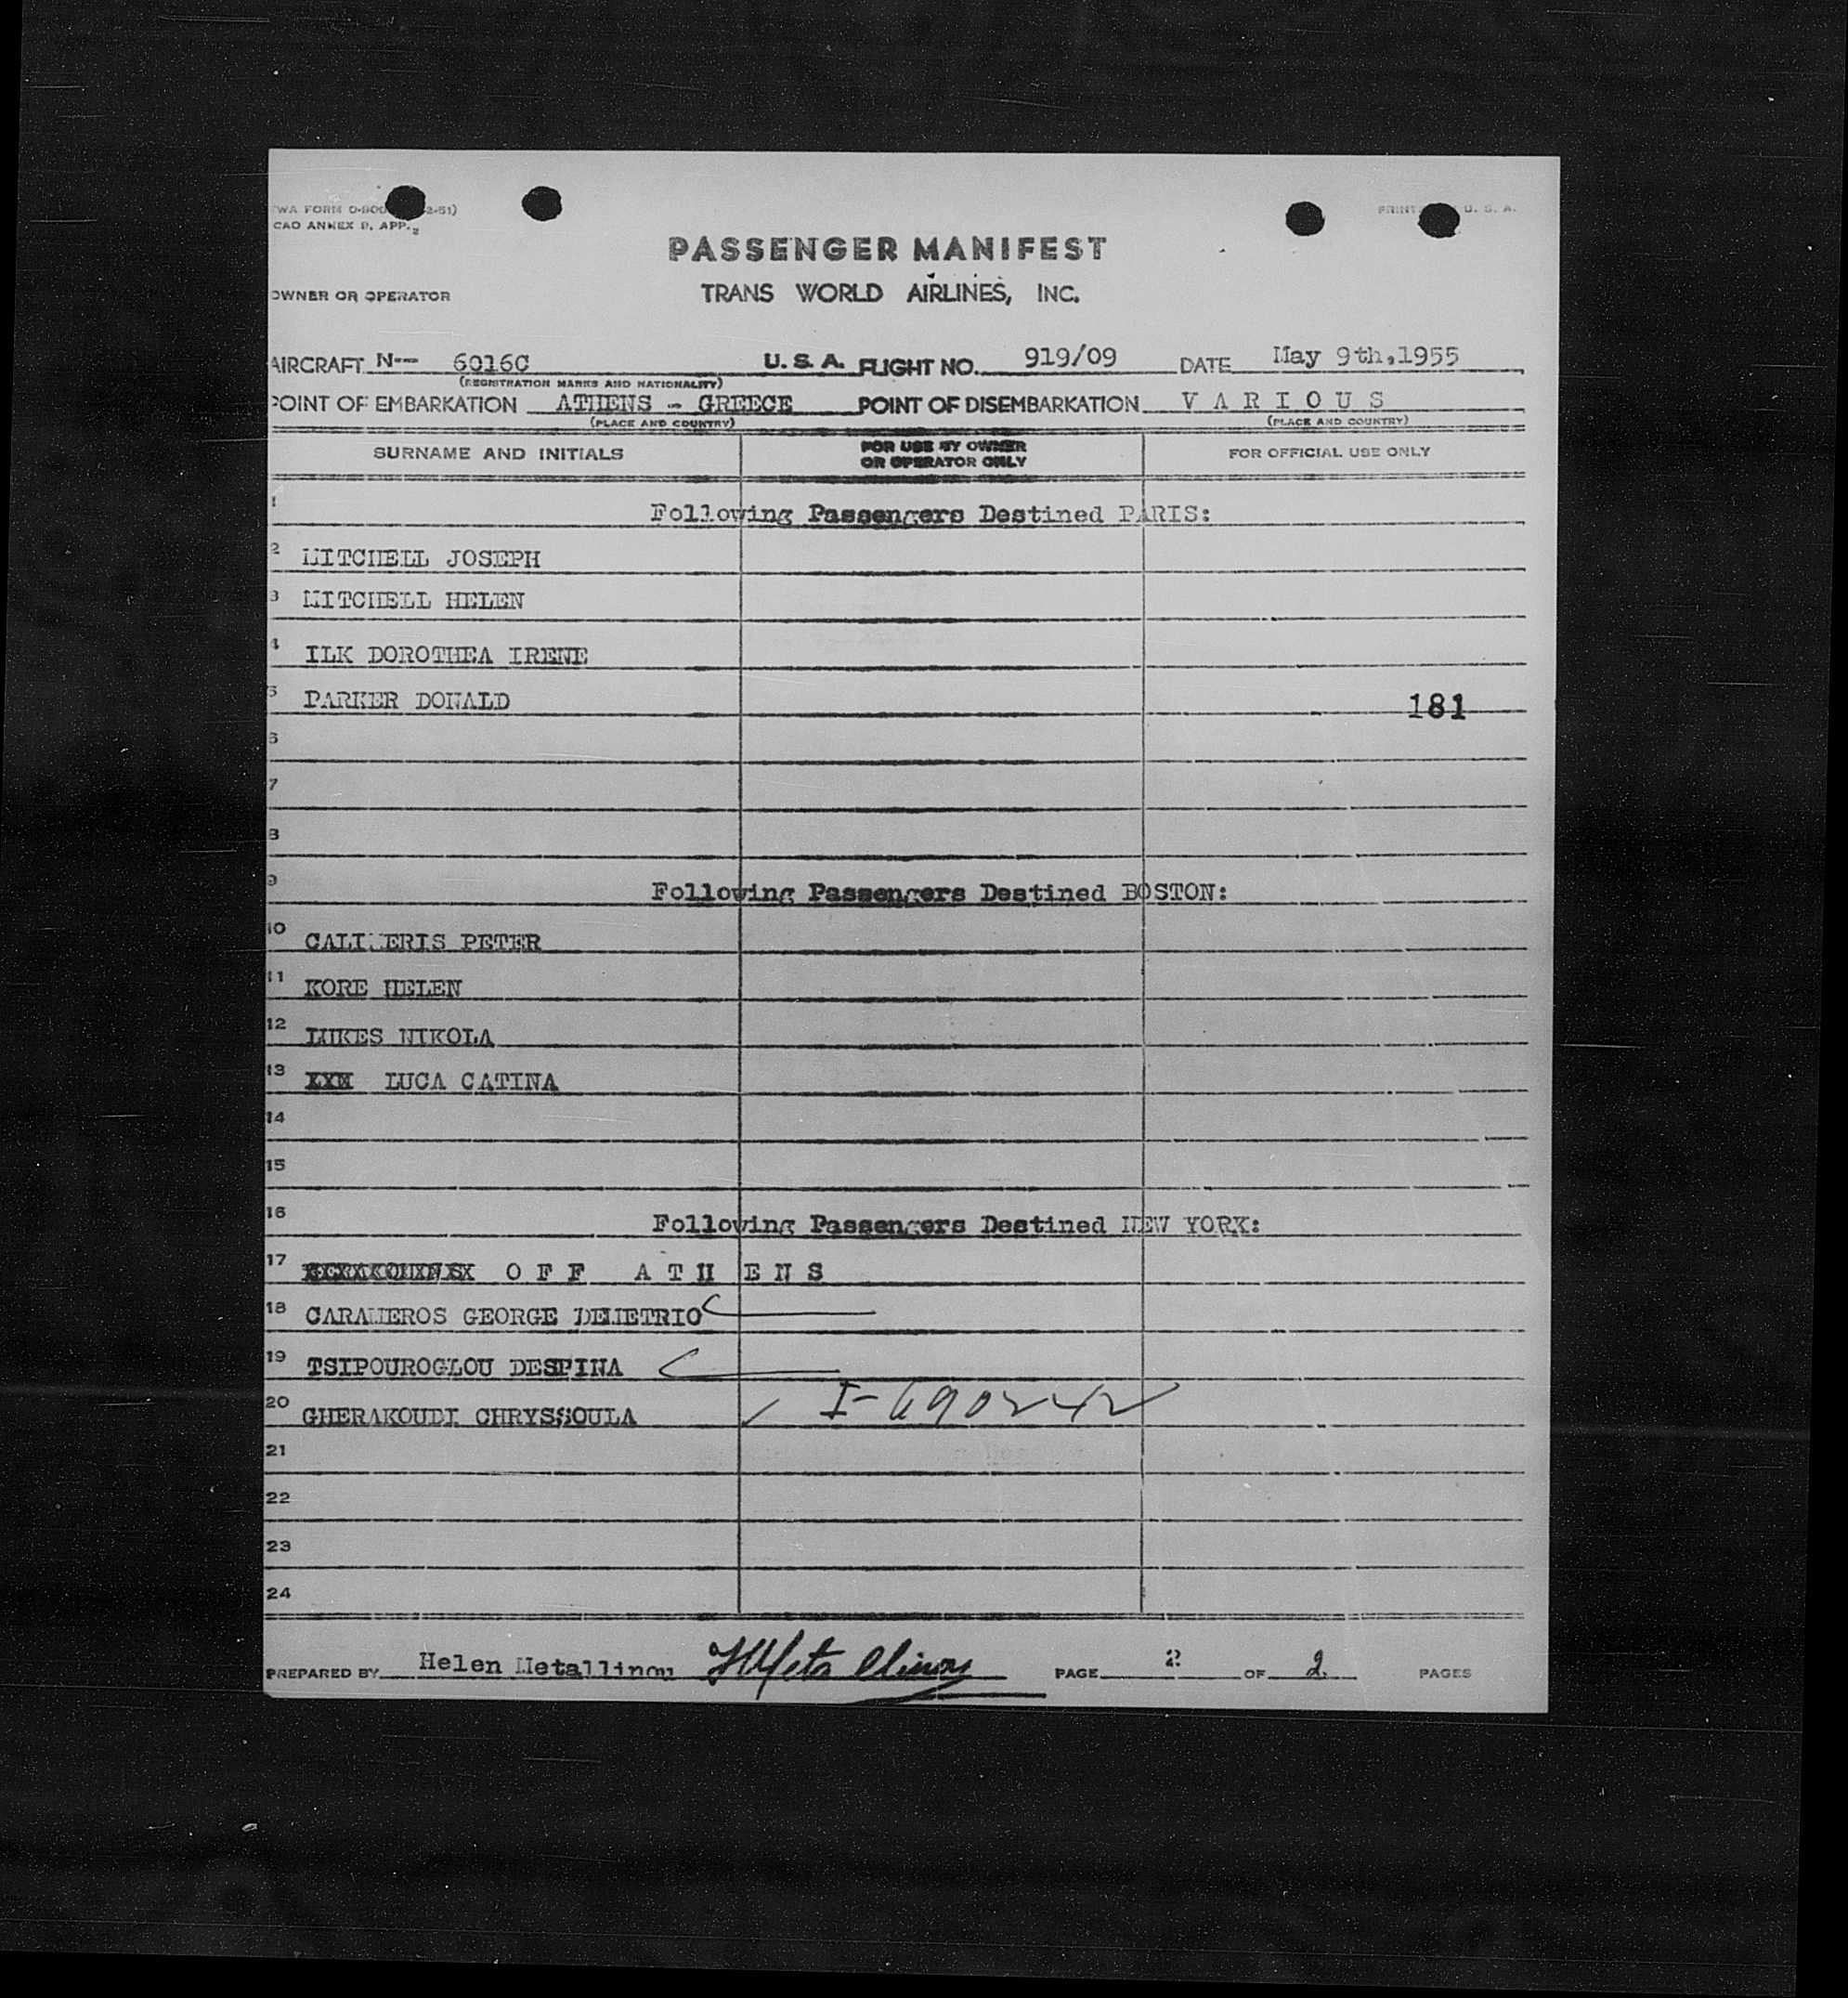 TWA FORM 0-900 2-51)
ICAO ANNEX 9, APP. 2
PRINT U. S. A.
PASSENGER MANIFEST
OWNER OR OPERATOR TRANS WORLD AIRLINES, INC.
AIRCRAFT N-- 6016C U. S. A. FLIGHT NO. 919/09 DATE May 9th,1955
(REGISTRATION MARKS AND NATIONALITY)
POINT OF EMBARKATION ATHENS - GREECE POINT OF DISEMBARKATION V A R I O U S
(PLACE AND COUNTRY) (PLACE AND COUNTRY)
SURNAME AND INITIALS FOR USE BY OWNER OR OPERATOR ONLY FOR OFFICIAL USE ONLY
1 Following Passengers Destined PARIS:
2 MITCHELL JOSEPH
3 MITCHELL HELEN
4 ILK DOROTHEA IRENE
5 PARKER DONALD 181
6
7
8
9 Following Passengers Destined BOSTON:
10 PETER
11 KORE HELEN
12 NIKOLA
13 LUCA CATINA
14
15
16 Following Passengers Destined NEW YORK:
17 O F F A T H E N S
18 CARAMEROS GEORGE DEMETRIO
19 TSIPOUROGLOU DESPINA
20 GHERAKOUDI CHRYSSOULA ✓ I-690242
21
22
23
24
PREPARED BY Helen Metallinou PAGE 2 OF 2 PAGES